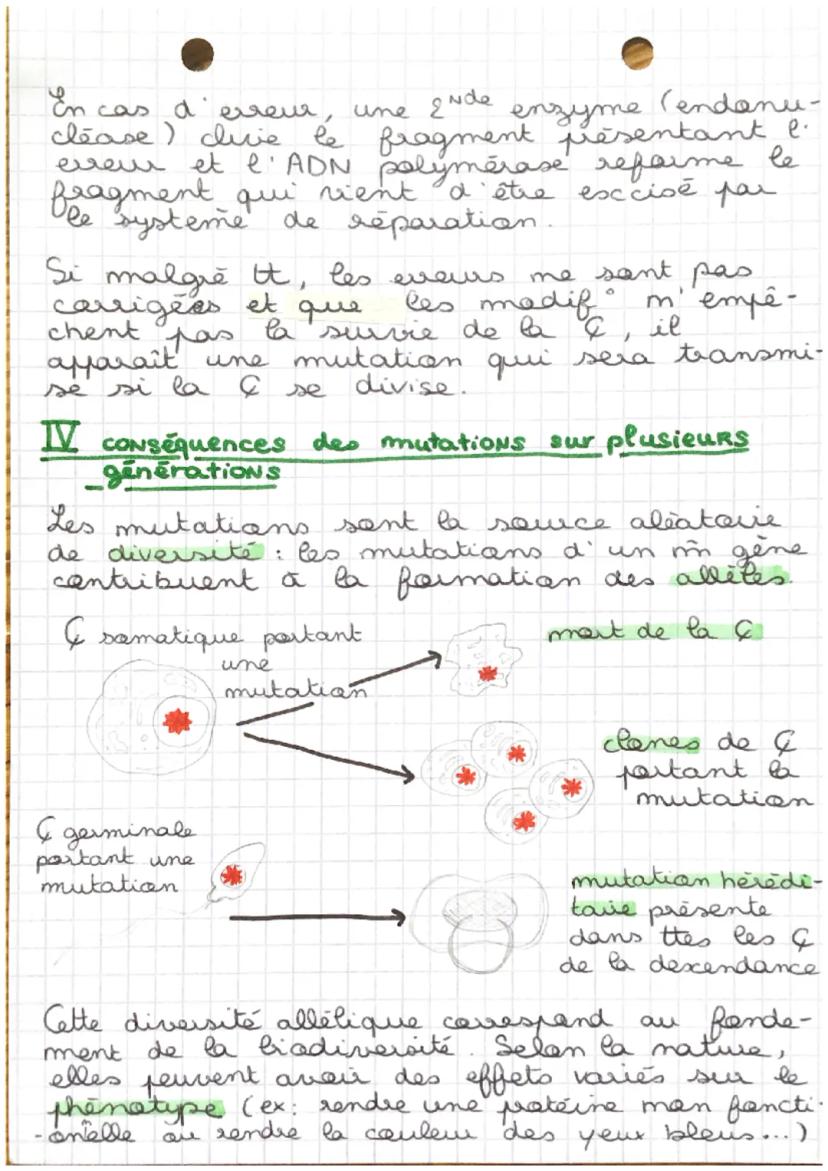 En cas d'erreur, une 2nde enzyme (endonu-
cléase) clive le fragment présentant l'
erreur et l'ADN polymérase reforme le
fragment qui vient d'être exccisé par
le système de réparation.
Si malgré tt, les erreurs ne sont pas
corrigées et que les modif° n'empê-
chent pas la survie de la ₵, il
apparaît une mutation qui sera transmi-
se si la ₵ se divise.
IV conséquences des mutations sur plusieurs
générations
Les mutations sont la source aléatoire
de diversité : les mutations d'un m̂ gène
contribuent à la formation des allèles.
₵ somatique portant
une
mutation
mort de la ₵
clones de ₵
portant la
mutation
₵ germinale
portant une
mutation
mutation hérédi-
taire présente
dans ttes les ₵
de la descendance
Cette diversité allélique correspond au fonde-
ment de la biodiversité. Selon la nature,
elles peuvent avoir des effets variés sur le
phénotype (ex: rendre une protéine non foncti-
-onnelle ou rendre la couleur des yeux bleus...)